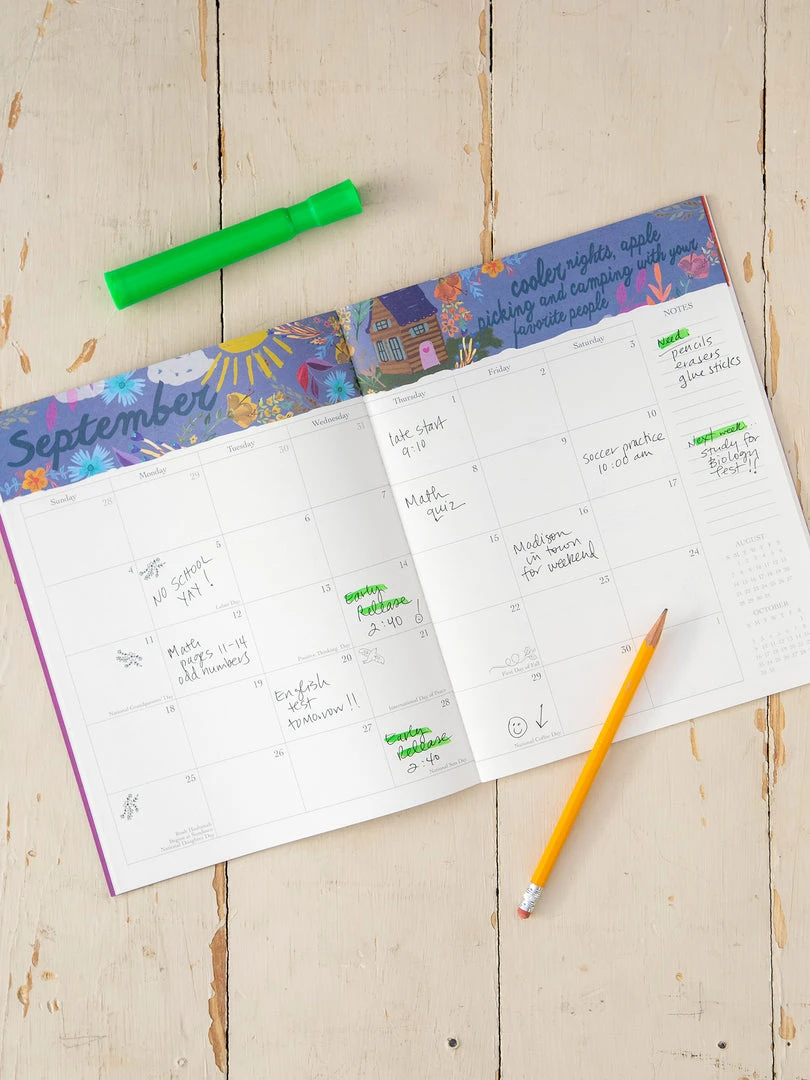 September
cooler nights, apple
picking and camping with your
favorite people
Sunday
Monday
Tuesday
Wednesday
Thursday
Friday
Saturday
NOTES
28
29
30
31
1
late start
9:10
2
3
4
5
NO SCHOOL
YAY!
Labor Day
6
7
8
Math
quiz
9
10
soccer practice
10:00 am
11
National Grandparents' Day
12
Math
pages 11-14
odd numbers
13
Positive Thinking Day
14
Early
Release
2:40 !
15
16
Madison
in town
for weekend
17
18
19
20
English
test
tomorrow!!
21
International Day of Peace
22
First Day of Fall
23
24
25
Rosh Hashanah
Begins at Sundown
National Daughters Day
26
27
28
Early
Release
2:40
National Son Day
29
National Coffee Day
30
1
Need
pencils
erasers
glue sticks
Next week
study for
Biology
test!!
AUGUST
OCTOBER